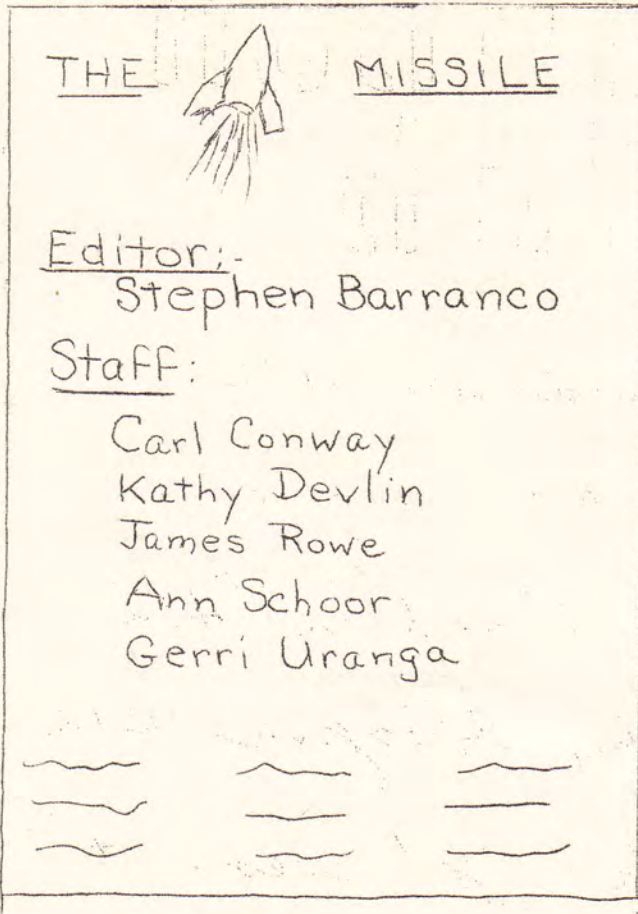 THE MISSILE
Editor:-
Stephen Barranco
Staff:
Carl Conway
Kathy Devlin
James Rowe
Ann Schoor
Gerri Uranga